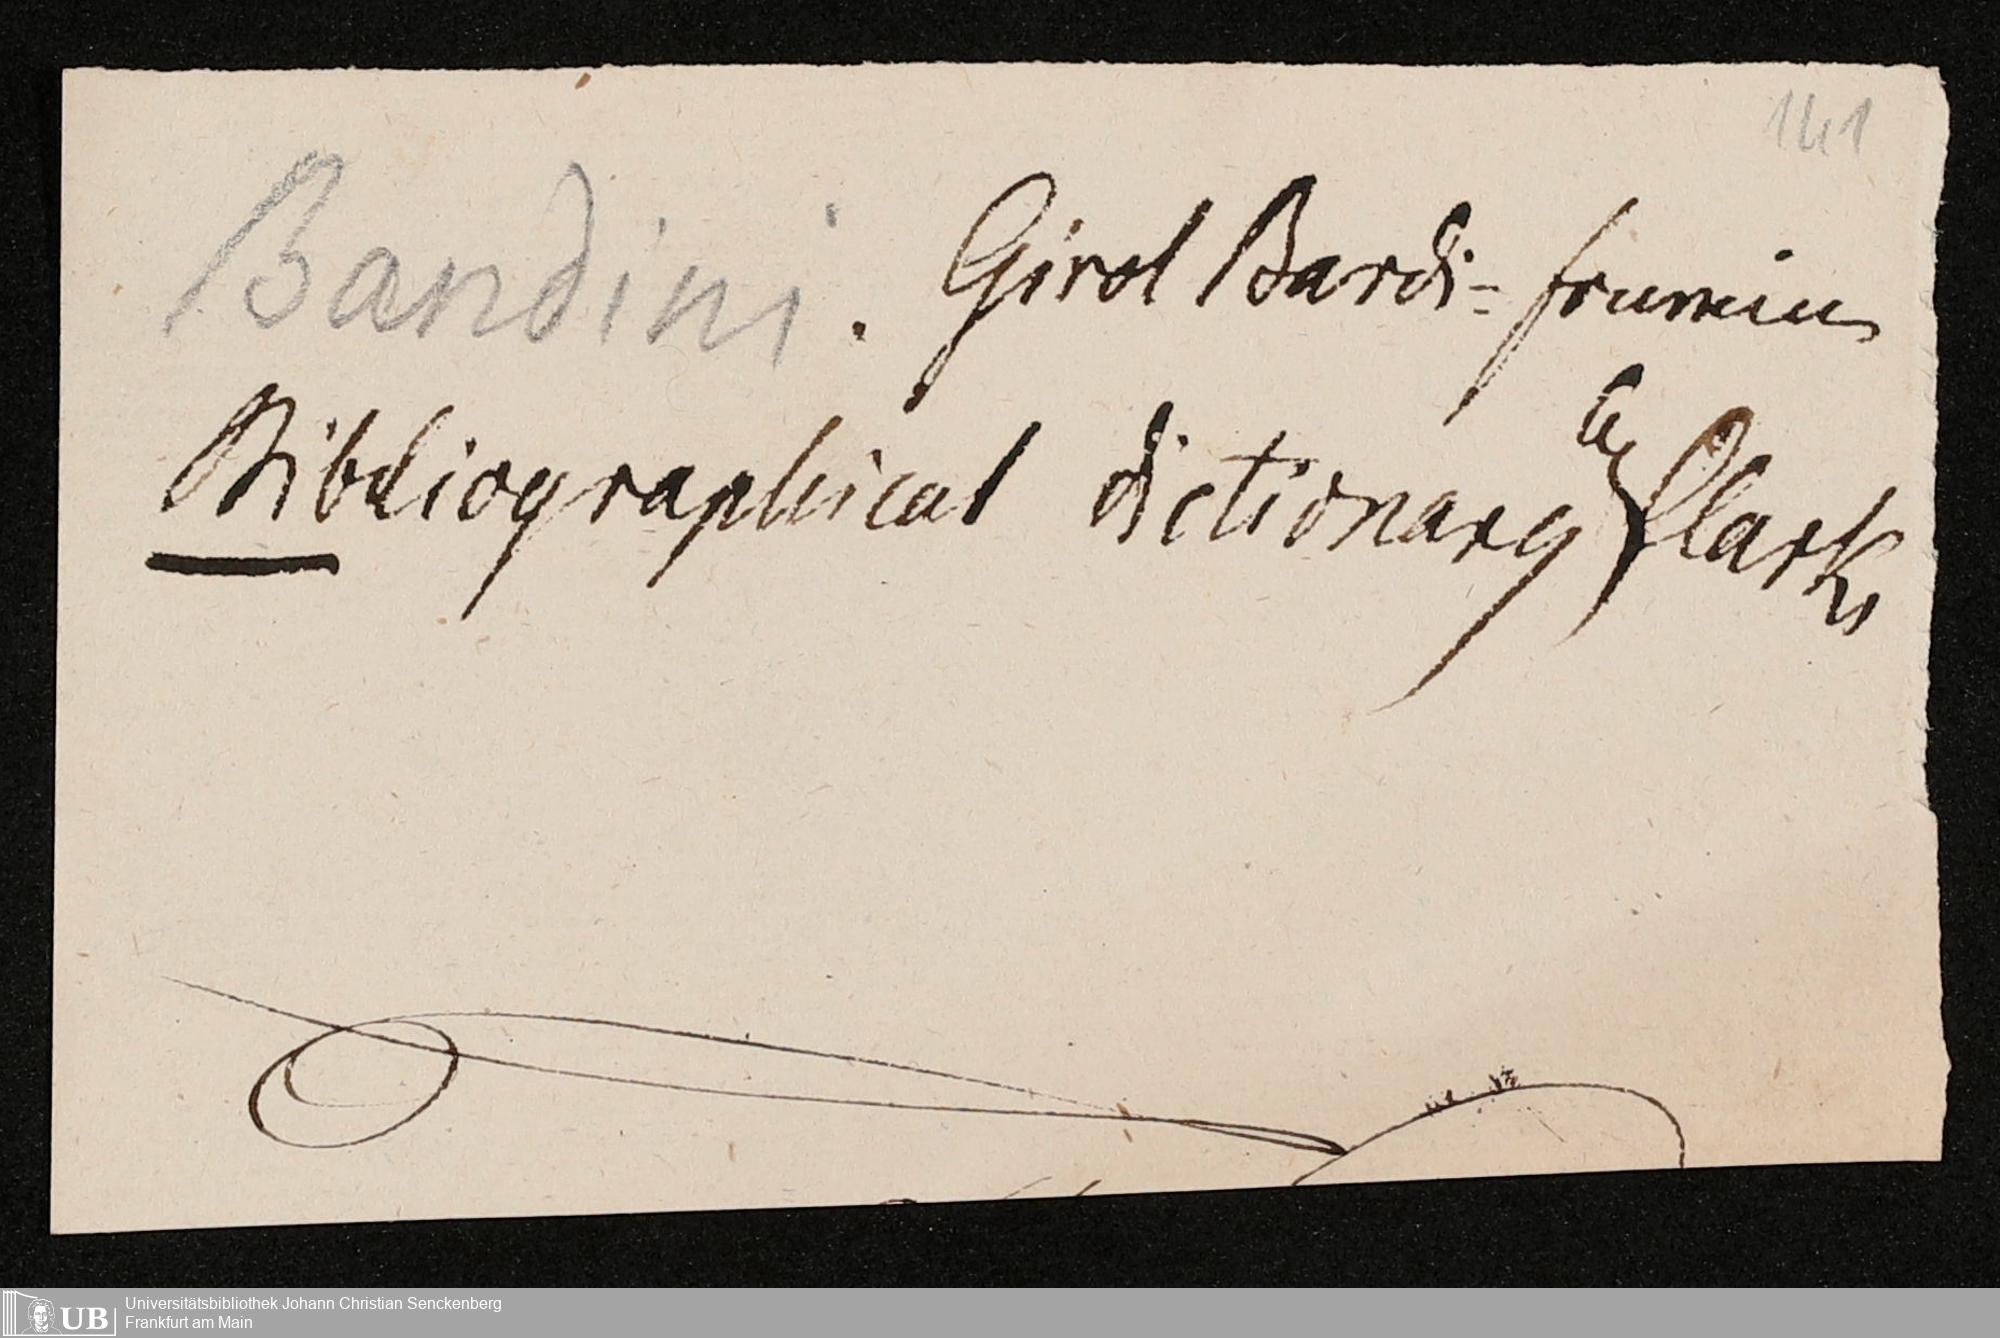 141
Bandini. Girol Bardi=
Bibliographical dictionary by Clark
Universitätsbibliothek Johann Christian Senckenberg
Frankfurt am Main
UB